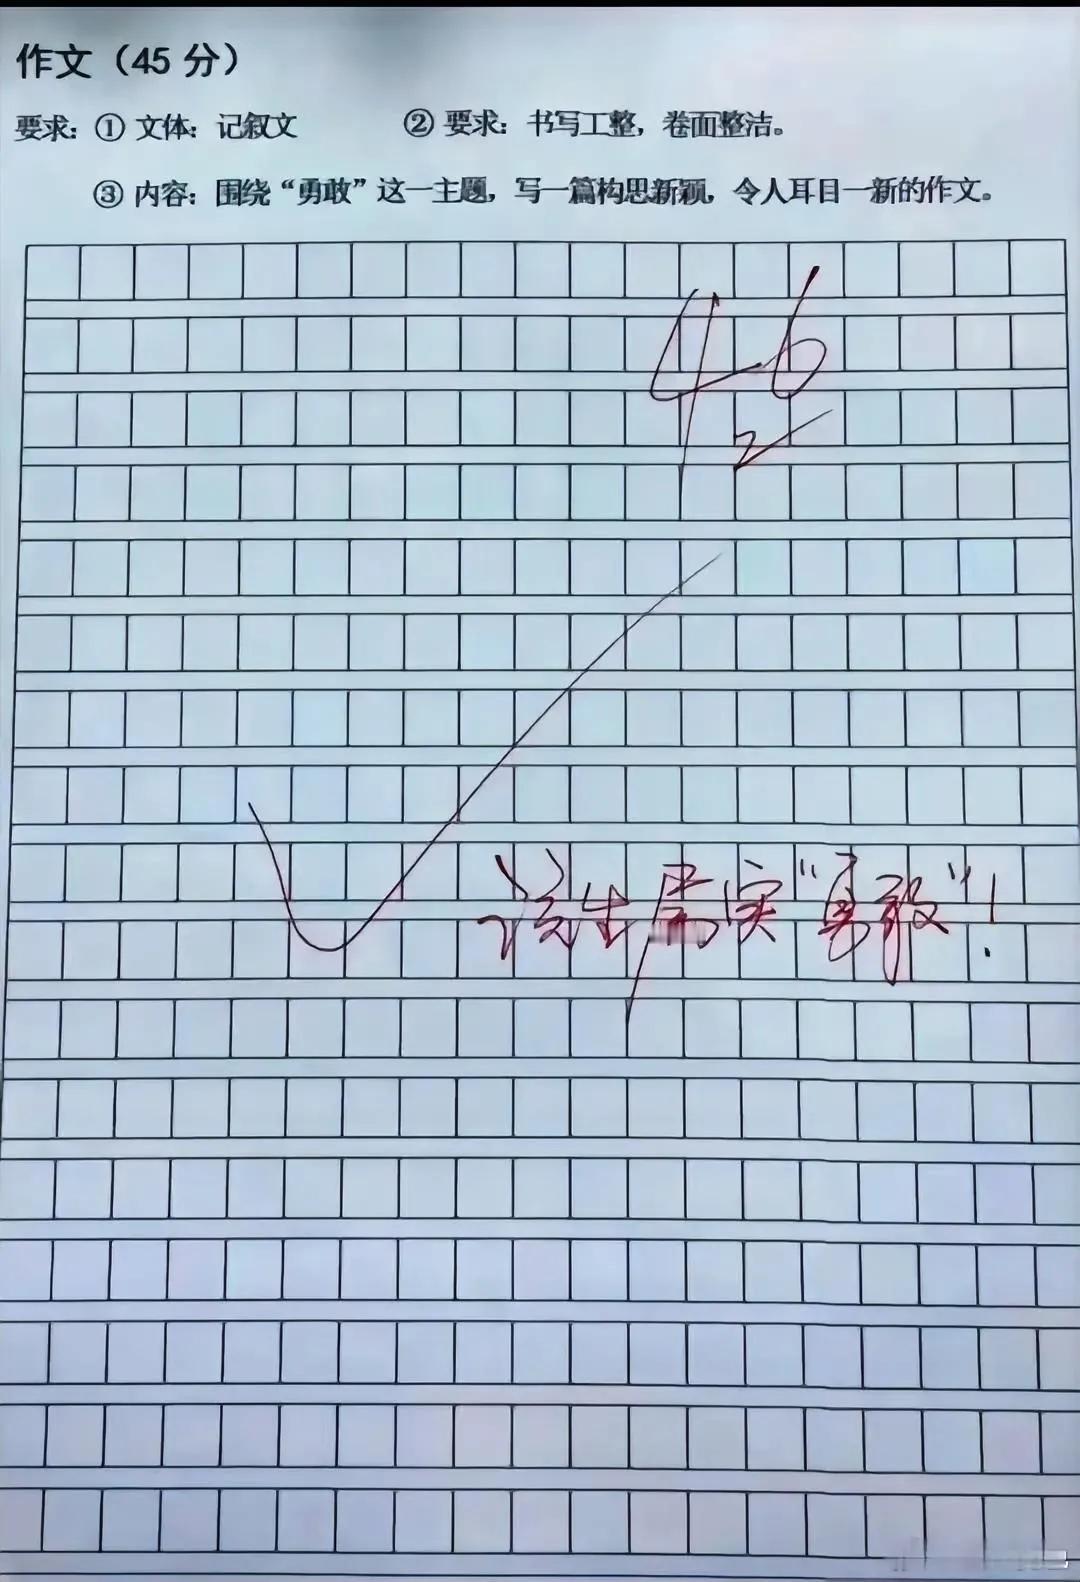 作文（45 分）
要求：① 文体：记叙文 ② 要求：书写工整，卷面整洁。
③ 内容：围绕“勇敢”这一主题，写一篇构思新颖，令人耳目一新的作文。
46
该生属实“勇敢”！